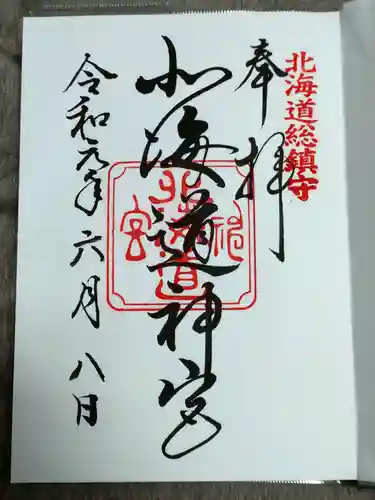 北海道総鎮守
奉拝
北海道神宮
令和元年六月八日